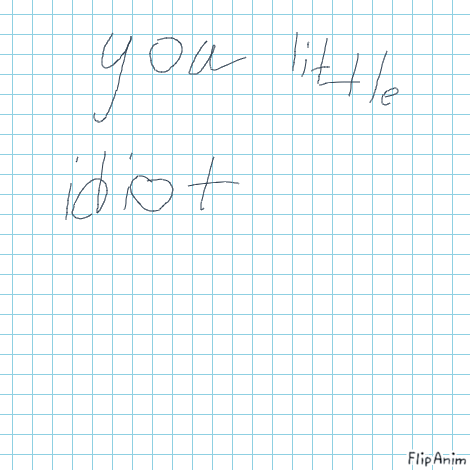 you little
idiot
FlipAnim